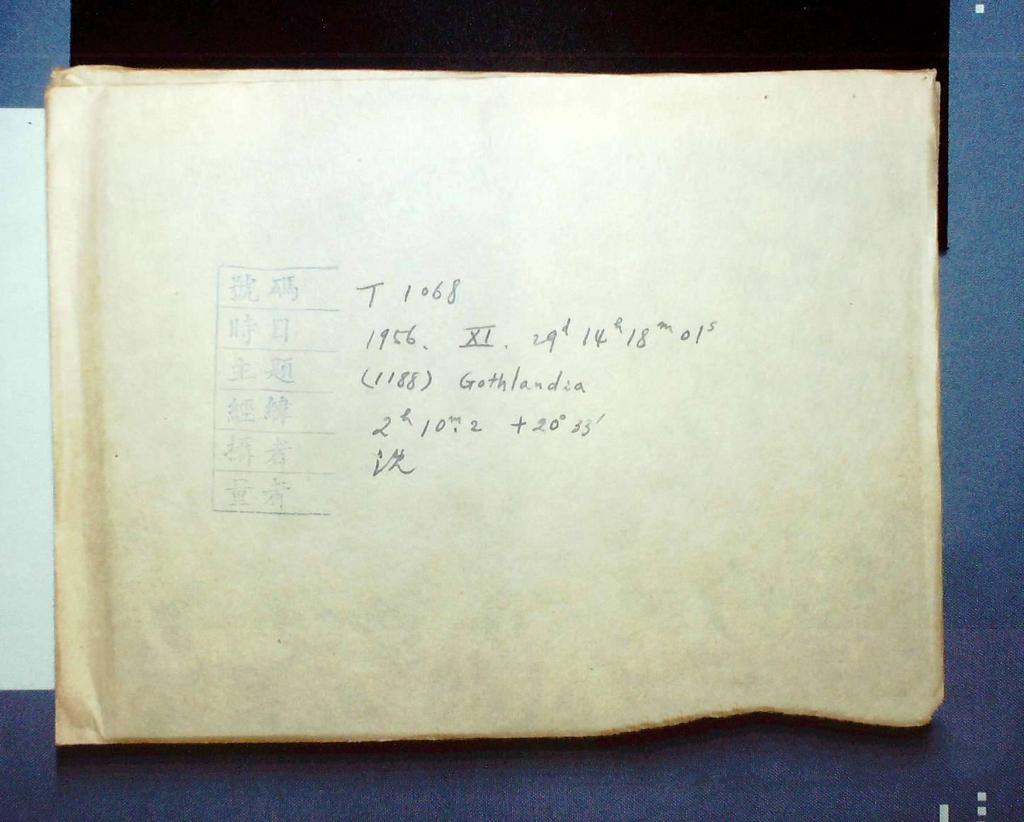 號碼 T 1068
時日 1956. XI. 29ᵈ 14ʰ 18ᵐ 01ˢ
主題 (1188) Gothlandia
經緯 2ʰ 10ᵐ.2 +20° 33′
攝者
量者